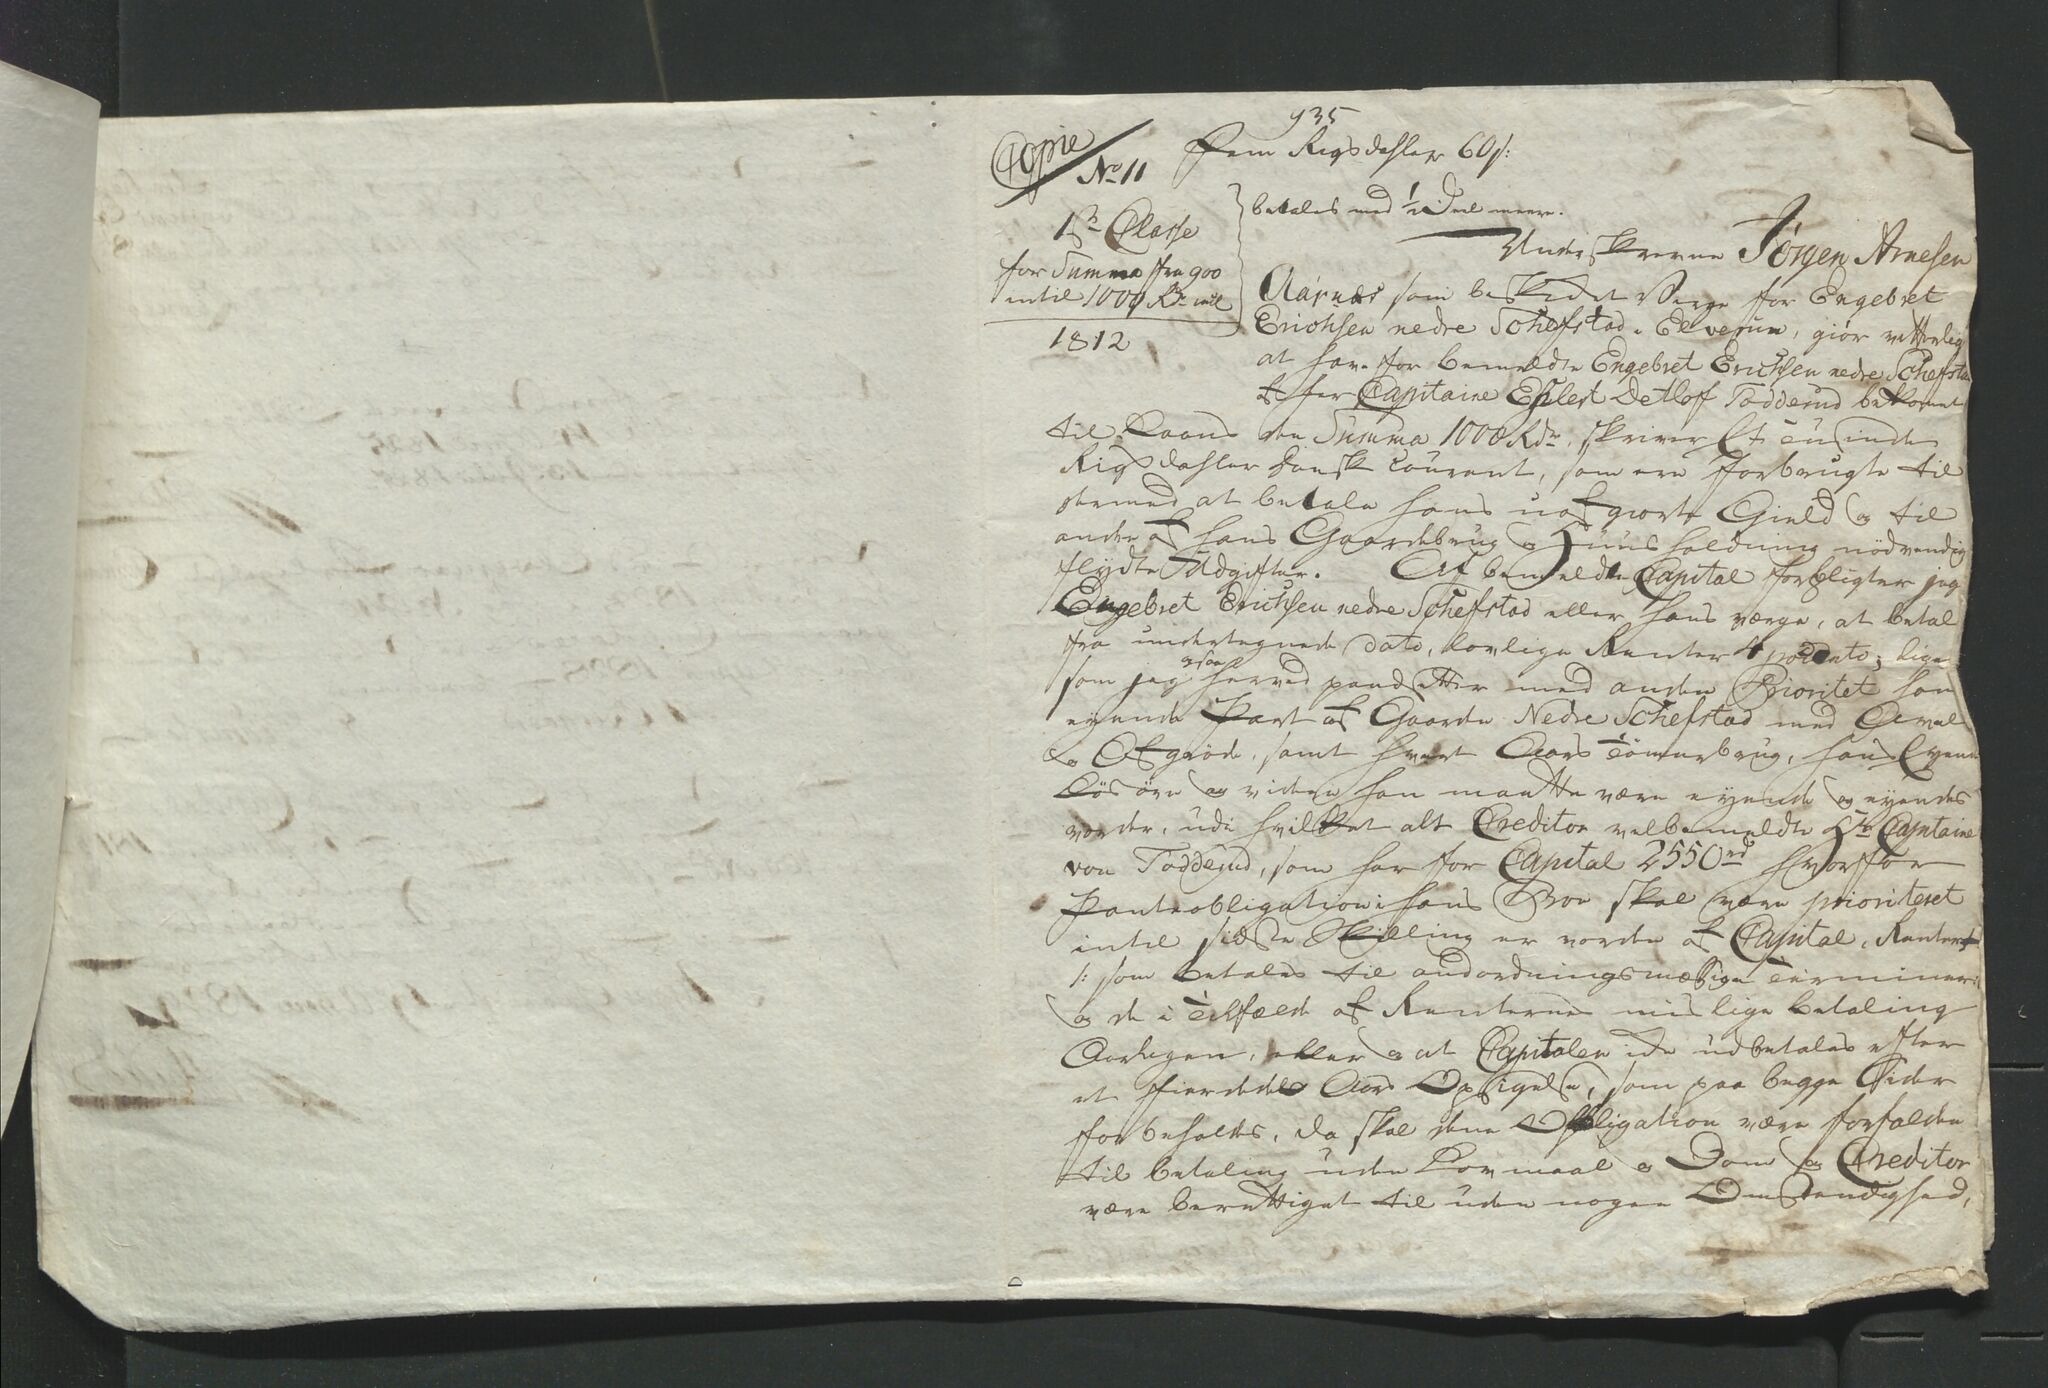 935
Copie
No 11
Fem Rigsdahler 60 s:
1ste Classe
for Summa fra 900
intil 1000 Rdr incl
1812
betales med ½ Deel meere.
Underskrevne Jörgen Arnesen
Aarnæs som beskikket Verge for Engebret
Erichsen nedre Schefstad i Elverum, giör vitterlig
at have for bemeldte Engebret Erichsen nedre Schefsta
af Her Capitaine Ehlert Detlof Todderud bekomet
til Laans den Summa 1000 Rdr, skriver Et Tusinde
Rigsdahler dansk Courant, som ere forbrugte til
dermed at betale hans uafgiorte Gield og til
andre af hans Gaardsbrug og Huusholdning nödvendig
flydte Udgifter. Af bemeldte Capital forpligter jeg
Engebret Erichsen nedre Schefstad eller hans værge, at betal
fra undertegnede dato, lovlige Renter 4 procento; lige
som jeg ogsaa herved pandsætter med anden Prioritet han
eyende Part af Gaarden Nedre Schefstad med Avel
og Afgröde, samt hvert Aars Tömmerbrug, hans Eyend
Lösöre og viden han maatte være eyende og eyendes
vorder, udi hvilket alt Creditor velbemeldte Hr Capitaine
von Todderud, som har for Capital 2550 rd hvorfor
Panteobligation i hans Boe skal være prioriteret
intil sidste Skilling er vorden af Capital, Renter
/: som betales til andordningsmæssige Terminer:
og de i Tilfælde af Renternes mislige betaling
Aarligen, eller og at Capitalen ide udbetales efter
et fierdedel Aars Opsigelse, som paa begge Sider
forbeholdes, da skal denne Obligation være forfalden
til betaling uden Lovmaal og Dom og Creditor
være berettiget til uden nogen Omstændighed,